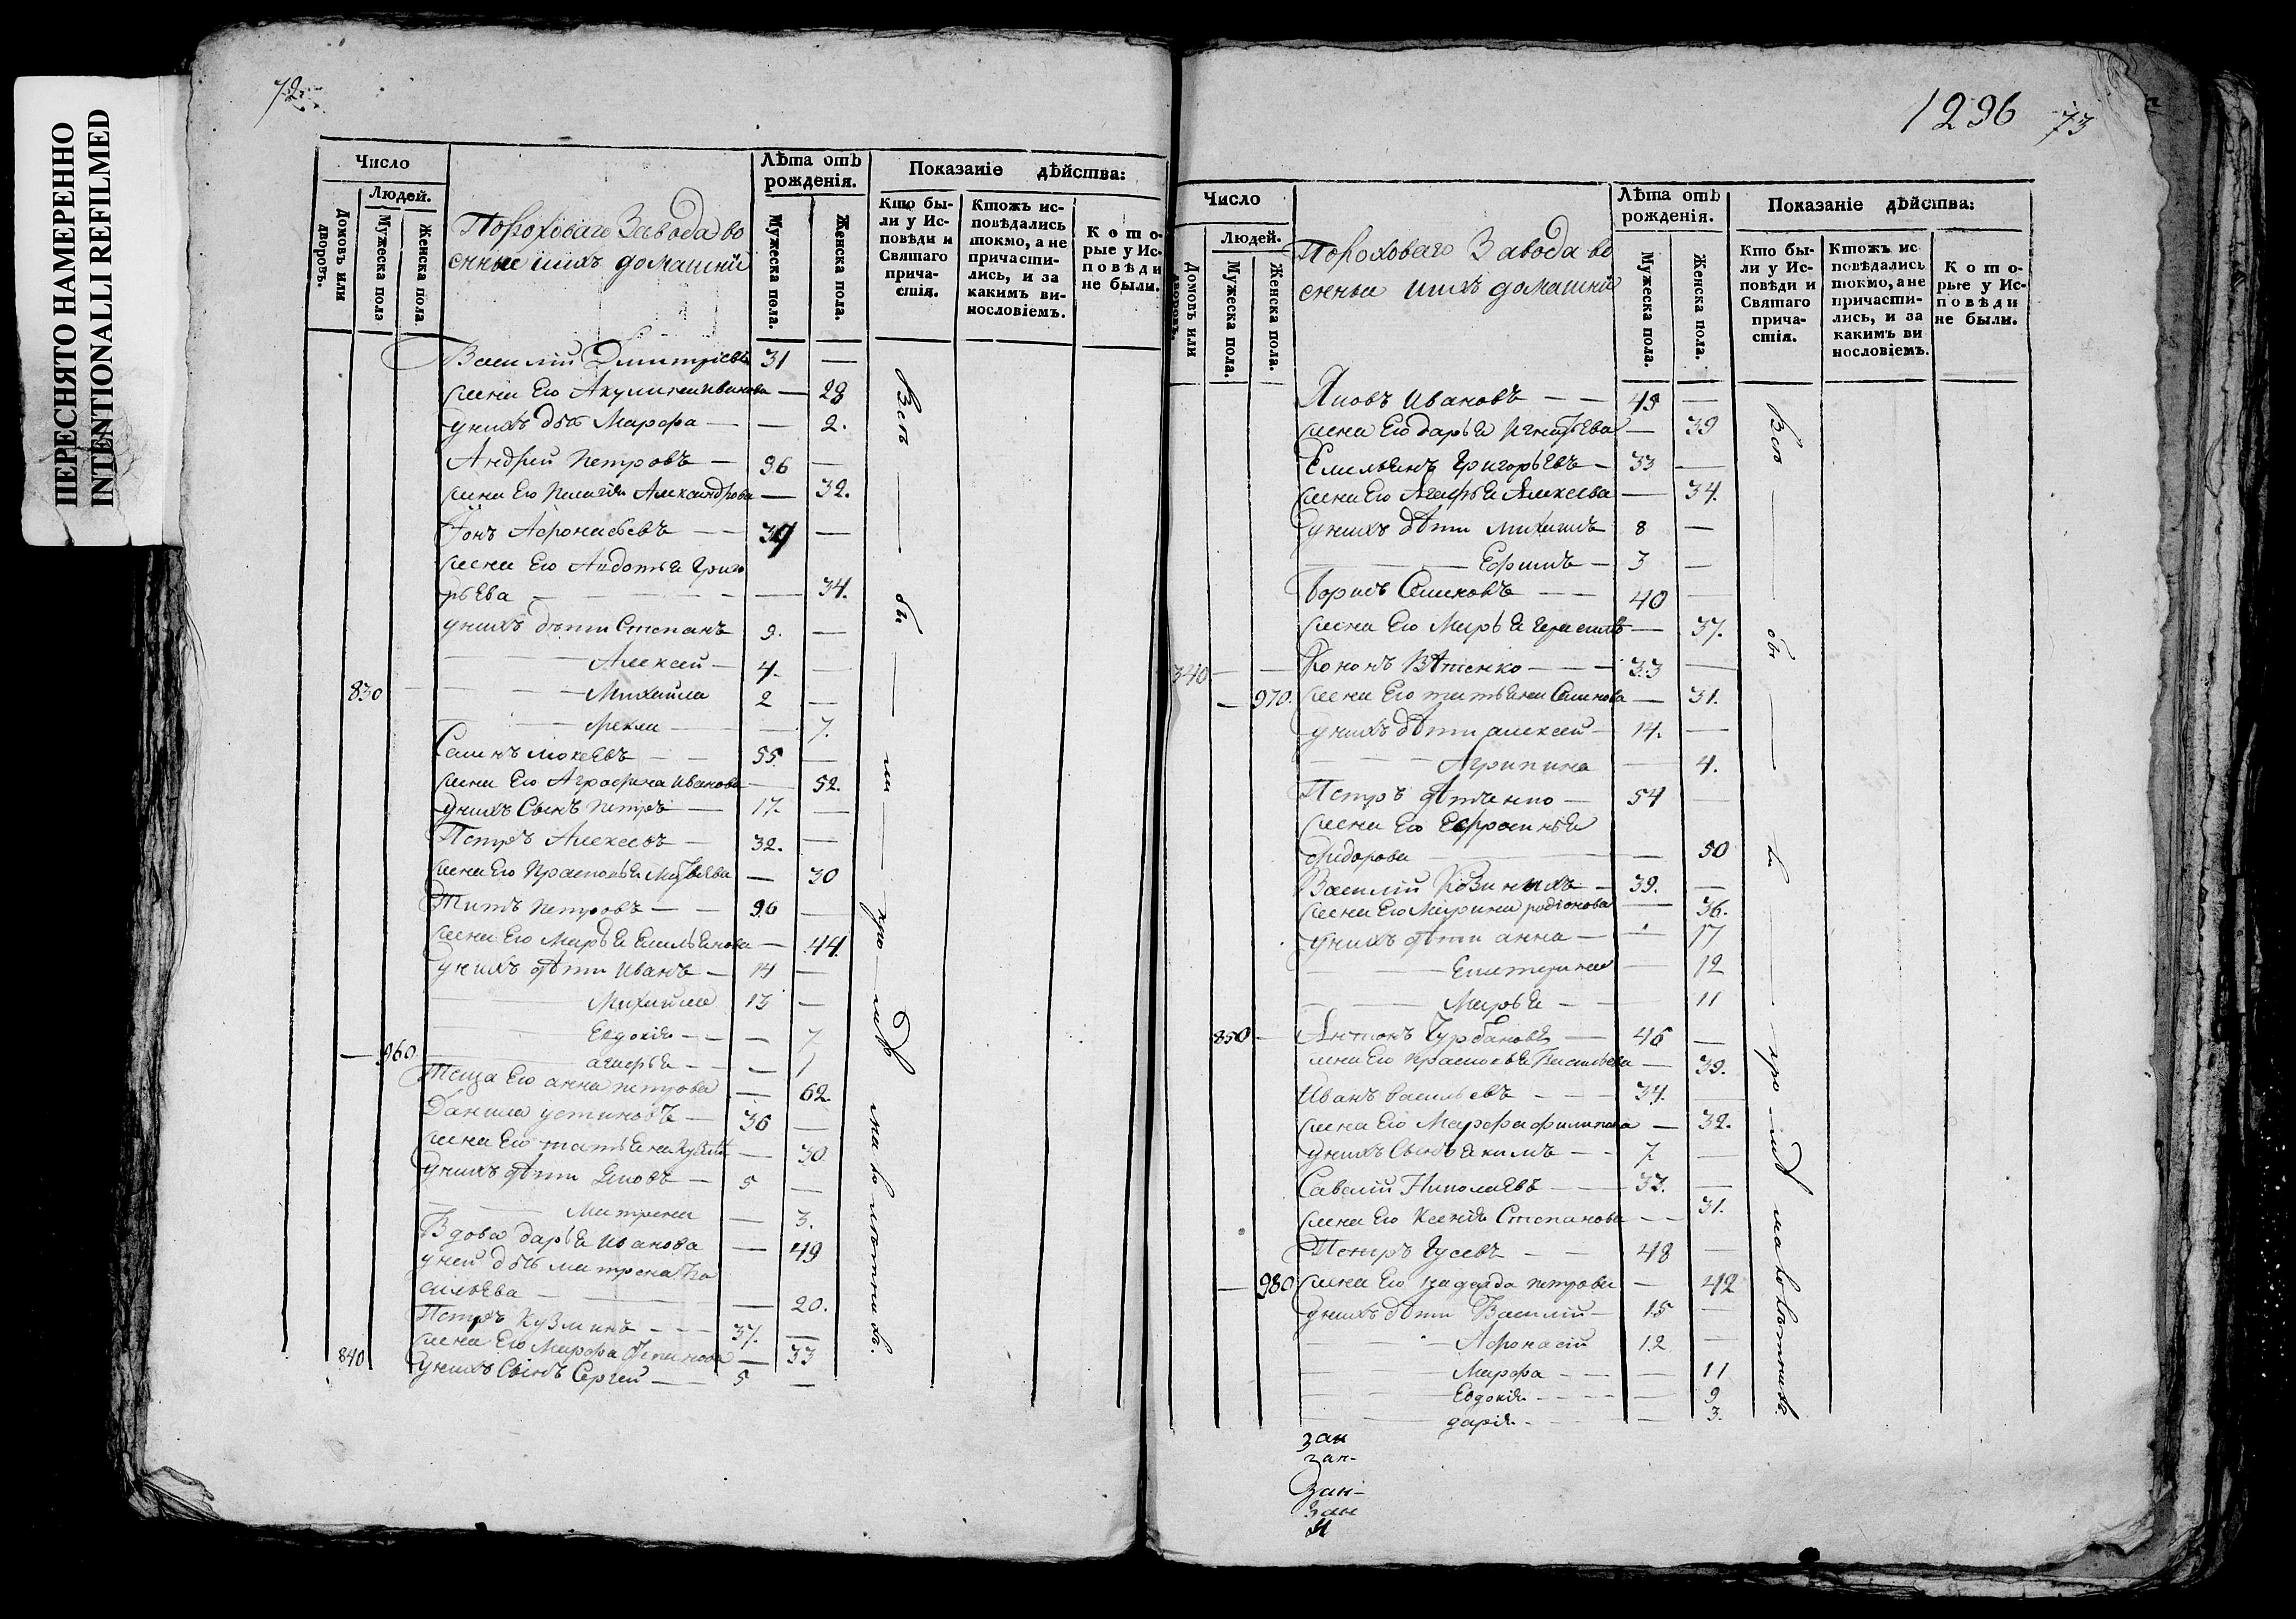 ПЕРЕСНЯТО НАМЕРЕННО
INTENTIONALLI REFILMED
72
Число
Людей.
Домовъ или дворовъ.
Мужеска пола
Женска пола.
Пороховаго Завода во
енные ихъ домашній
Лѣта отъ рожденія.
Мужеска пола.
Женска пола.
Показаніе дѣйства:
Кто были у Исповѣди и Святаго причастія.
Ктожъ исповѣдались токмо, а не причастились, и за какимъ винословіемъ.
Которые у Исповѣди не были.
Василій Дмитріевъ 31 —
жена Его Акулина Иванова — 28
у нихъ дбѣ Марфа — — 2.
Андрей Петровъ — 36 —
жена Его Пелагія Александрова — 32.
Іонъ Афонасьевъ — — 37 —
жена Его Авдотья Григо
рьева — — 34.
у нихъ дѣти Степанъ 9. —
Алексей — 4. —
830 Михайла 2 —
Фекла — 7.
Семенъ Мокеевъ 55 —
жена Его Аграфена Иванова — 52.
у нихъ Сынъ Петръ — 17. —
Петръ Алексевъ — 32. —
жена Его Прасковья Матвеева — 30
Титъ Петровъ — — 96 —
жена Его Марья Емельянова — 44.
у нихъ дѣти Иванъ — 14 —
Михайла 13 —
Евдокія — — — 7
— 960 агафья — — — 1
Теща Его анна петрова — 62.
Данила устиновъ — 36 —
жена Его татьяна — 30.
у нихъ дѣти Яковъ — 5 —
Матрена — 3.
Вдова дарья иванова — 49
у ней дбѣ матрена Ва
сильева — — 20.
Петръ Кузминъ — — 37. —
жена Его Марфа — 33
840 у нихъ Сынъ Сергей — 5 —
Всѣ — бы — ли — про
на Комъ
1296 73
Число
Людей.
Домовъ или дворовъ.
Мужеска пола.
Женска пола.
Пороховаго Завода во
енныя ихъ домашній
Лѣта отъ рожденія.
Мужеска пола.
Женска пола.
Показаніе дѣйства:
Кто были у Исповѣди и Святаго причастія.
Ктожъ исповѣдались токмо, а не причастились, и за какимъ винословіемъ.
Которые у Исповѣди не были.
Яковъ Ивановъ — — 49 —
жена Его дарья Игнатьева — 39
Емельянъ Григорьевъ — 33 —
жена Его Агафья Алексева — 34.
у нихъ дѣти Михаилъ 8 —
Ефимъ — 3 —
Борисъ Семеновъ — — 40 —
жена Его Марья — 37.
340 — — Кононъ — — — 33 —
— 970. жена Его татьяна Семенова — 31.
у нихъ дѣти алексей — 14. —
Агрипина — 4.
Петръ — 54 —
жена Его Ефросинья
Сидорова — — 50
Василій — 39. —
жена Его Марина родіонова — 36.
у нихъ дѣти анна — — 17
Екатерина — 12
Марья — — 11
850 — Антонъ Курбановъ — 46 —
жена Его Прасковья Васильева — 39.
Иванъ васильевъ — — 34. —
жена Его Марфа филипова — 32.
у нихъ Сынъ якимъ — — 7 —
Савелій Николаевъ — — 33. —
жена Его Ксенія Степанова — — 31.
Петръ Гусевъ — — 48 —
— 980 жена Его петрова — 42
у нихъ дѣти Василій — 15 —
Афонасій 12 —
Марфа — — — 11
Евдокія — — — — 9
дарія — — — 3.
Всѣ — бы — ли — про
на Комъ
зан
зан-
Зан-
Зан